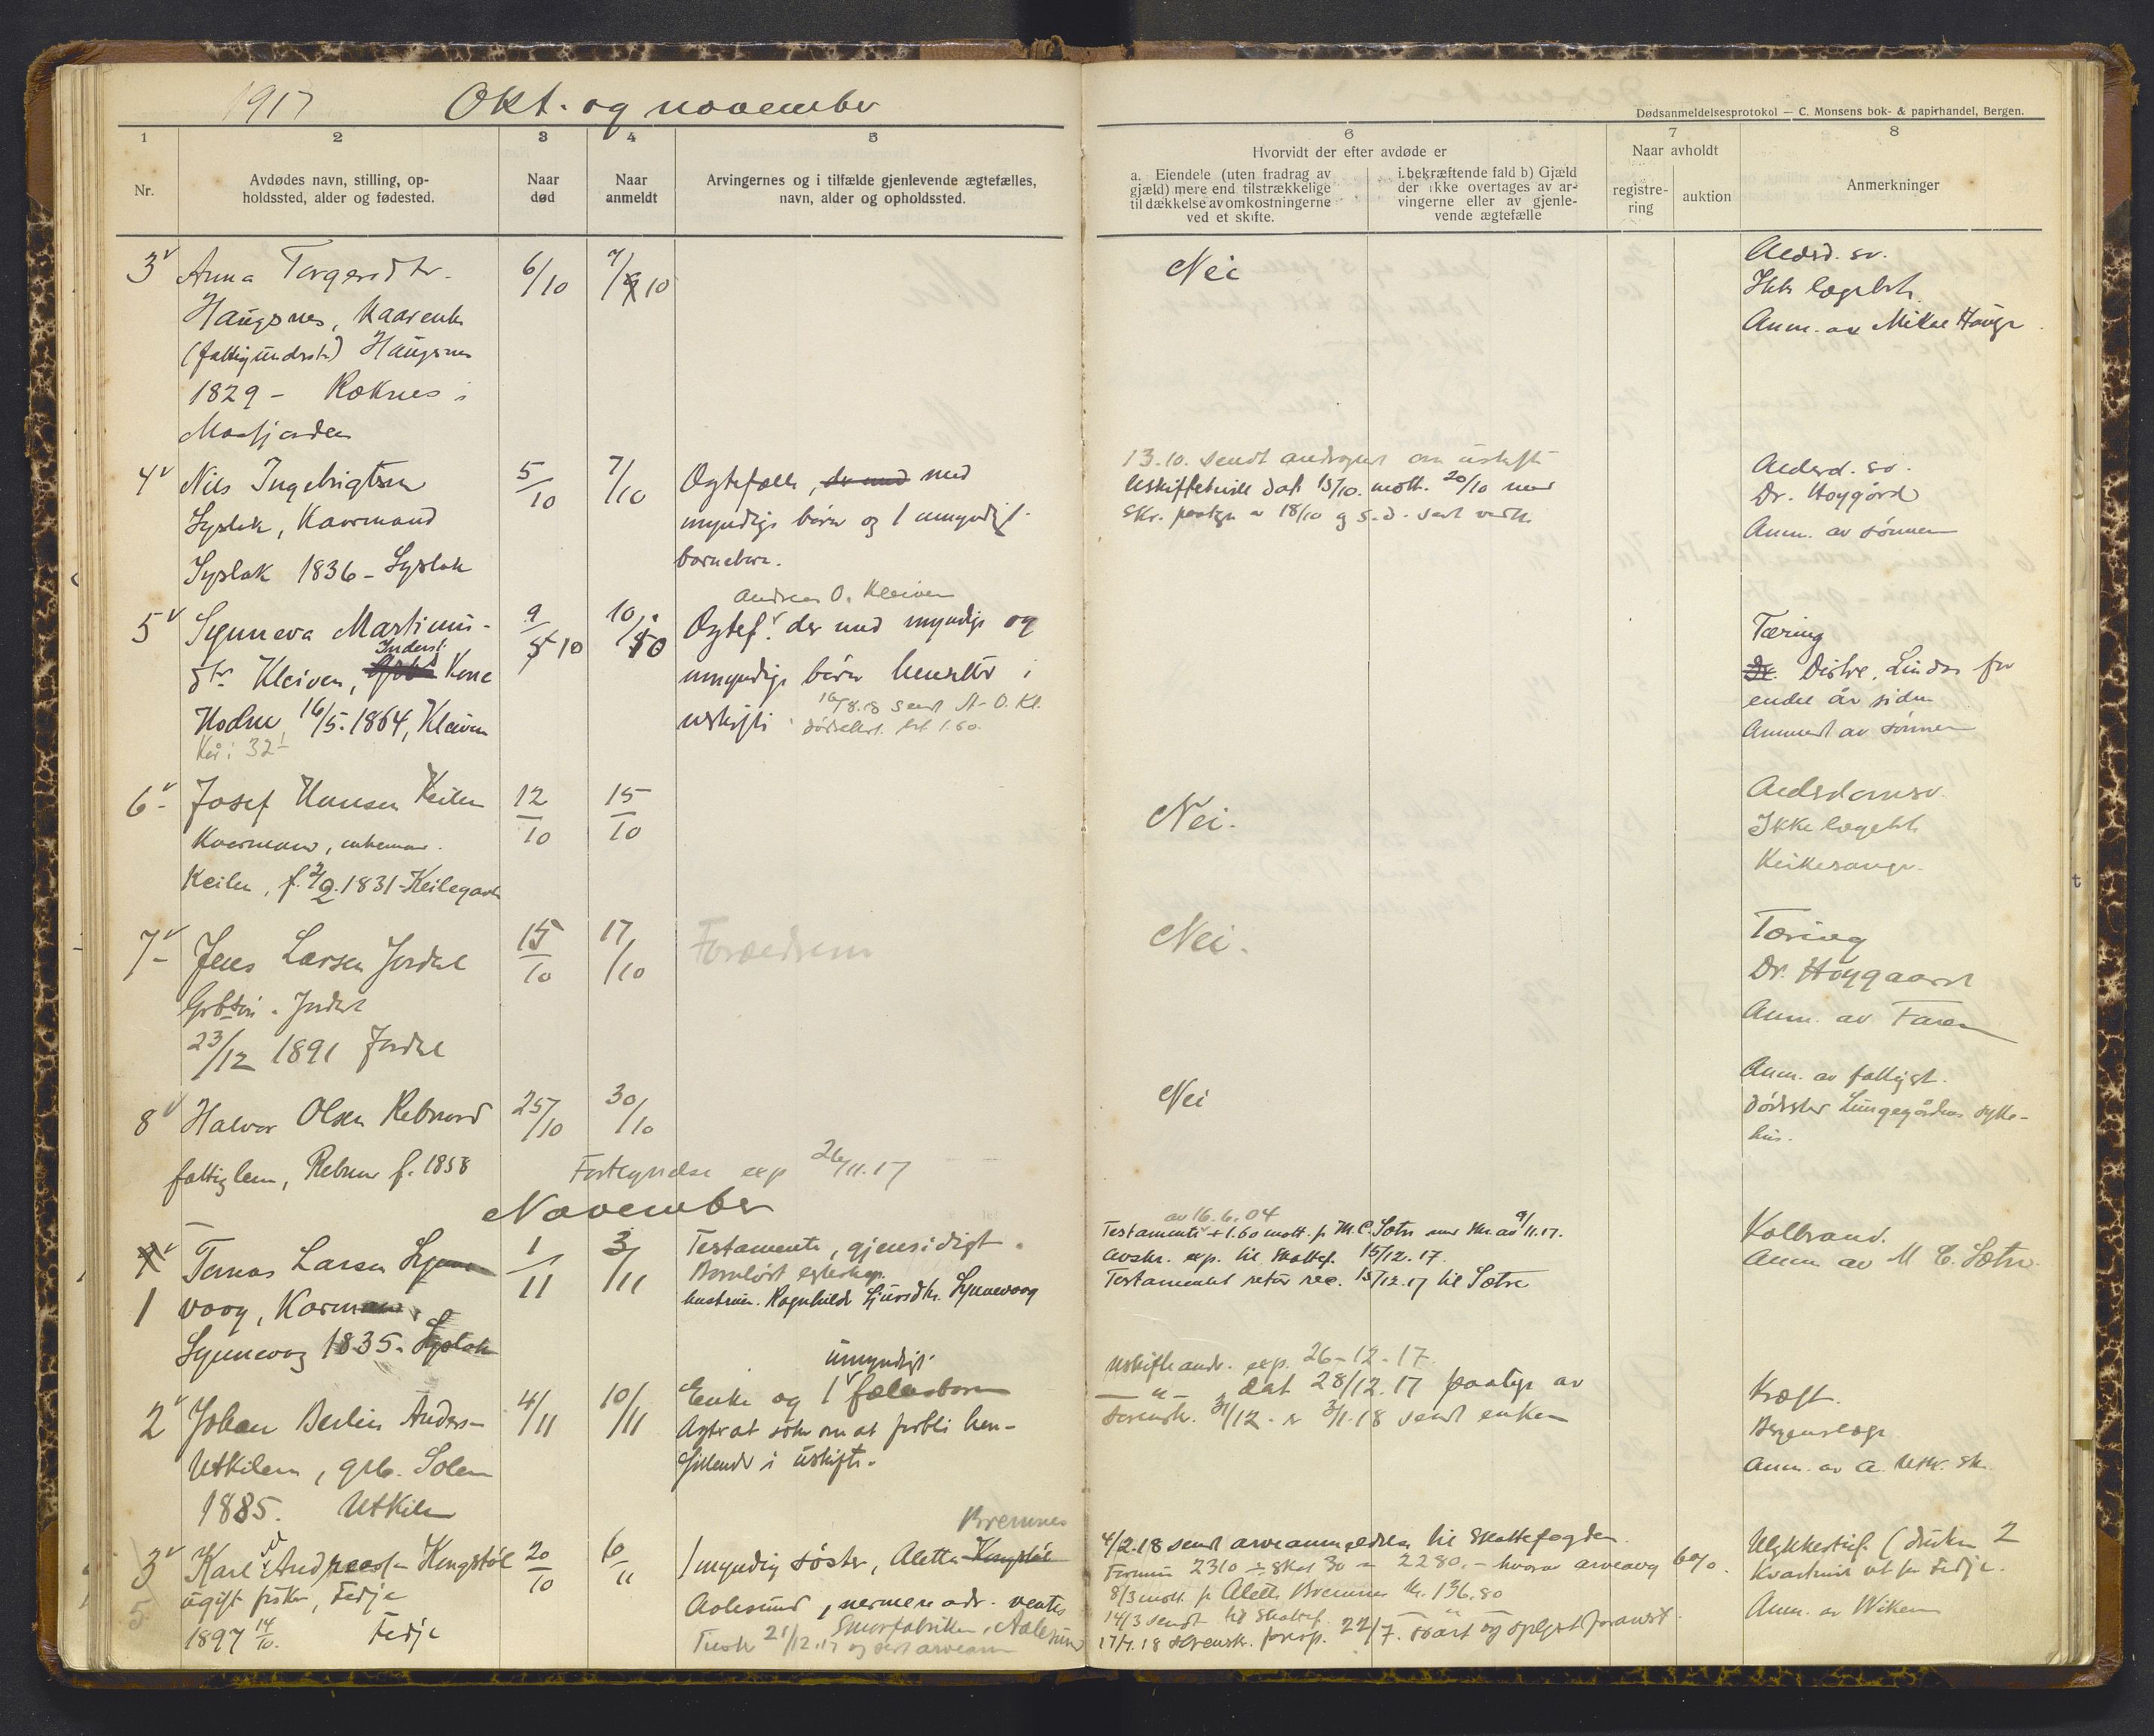 1917 Okt. og november
Dødsanmeldelsesprotokol — C. Monsens bok- & papirhandel, Bergen.
1 2 3 4 5 6 7 8
Nr.
Avdødes navn, stilling, op-
holdssted, alder og fødested.
Naar
død
Naar
anmeldt
Arvingernes og i tilfælde gjenlevende ægtefælles,
navn, alder og opholdssted.
Hvorvidt der efter avdøde er
a. Eiendele (uten fradrag av
gjæld) mere end tilstrækkelige
til dækkelse av omkostningerne
ved et skifte.
i bekræftende fald b) Gjæld
der ikke overtages av ar-
vingerne eller av gjenle-
vende ægtefælle
Naar avholdt
registre-
ring
auktion
Anmerkninger
3 Anna Torgersdtr.
Haugsnes, Kaarenke
(fattigunderst.) Haugsnes
1829 - Roknes i
Masfjorden
6/10 7/10
Nei
Aldrd. sv.
Ikke lægebeh.
Anm. av Mikal Haugs
4 Nils Ingebrigtsen
Syslak, Kaarmand
Syslak 1836 - Syslak
5/10 7/10
Ægtefælle, med
myndige børn og 1 umyndigt
barnebarn.
13.10. sendt andragende om uskifte
Uskiftebevill. dat. 15/10. mott. 20/10 med
skr. paategn. av 18/10 og s. d. sendt
Alderd. sv.
Dr. Høygård
Anm. av sønnen
5 Synneva Martinus-
dtr. Kleiven, Inderst. Kone
Hodne, 16/5. 1864, Kleiven
32
9/10 10/10
Andreas O. Kleiven
Ægtef. der med myndige og
umyndige børn hensitter i
uskifte
16/8.18 sendt A. O. Kl.
dødsattest. bet. 1.60.
Tæring
Distr. Lindås for
endel år siden
Anmeldt av sønnen
6 - Josef Hansen Keilen
Kaarmann, enkemann.
Keilen, f. 2/2. 1831 - Keilegavlen
12/10 15/10
Nei.
Alderdomssv.
Ikke lægebeh.
Kirkesanger
7 - Jens Larsen Jordal
Grbsøn. Jordal
23/12 1891 Jordal
15/10 17/10
Forældrene
Nei.
Tæring
Dr. Høygaard
Anm. av Faren
8 Halvor Olsen Rebnord
fattiglem, Rebnor f. 1858
25/10 30/10
Nei
Anm. av fattigst.
dødssted Lungegårdens syke-
hus.
Forkyndelse exp 26/11.17
November
1 Tomas Larsen Synne-
voog, Karmann
Synnevoog 1835. Syslak
1/11 3/11
Testamente, gjensidigt.
Barnløst egteskap.
hustruen. Ragnhilde Sjursdtr. Synnevoog
av 16.6.04
Testamente + 1.60 mott. fr M. C. Sætre med skr. av 9/11.17.
Avskr. exp. til Skattef. 15/12.17.
Testamentet retur rec. 15/12.17 til Sætre
Kolbrand.
Anm. av M. C. Sætre.
2 Johan Berlin Anders-
Utkilen, grb. Solem
1885. Utkilen
4/11 10/11
umyndigt
Enke og 1 fællesbarn
Agter at søke om at forbli hen-
sittende i uskifte.
Uskifteandr. exp. 26-12-17.
— " — dat 28/12.17 paategn. av
sorensk. 31/12. & 3/1.18 sendt enken
Kræft.
Bergenslæge
Anm. av A. Utk.
3 Karl Andreas - Kongstøl
ugift fisker, Fedje
1897 14/10. Fedje
20/10 6/11
Bremnes
1 myndig søster, Aletta Kongstøl
Aalesund, nermere adr. ventes
Smørfabrikken, Aalesund
Tilsk. 21/12.17 og sendt arveanm
4/2.18 sendt arveanmeldelsen til Skattefogden.
Formue 2310 ÷ skat 30 = 2280.- hvorav arveavg 6%.
8/3 mott. fr Aletta Bremnes kr. 136,80
14/3 sendt til Skattef.
17/7.18 sorensk. foresp. 22/7. svart og oplyst foranst.
Ulykkestilf. (druknet 2
Kvartmil ut for Fedje.
Anm. av Wiken